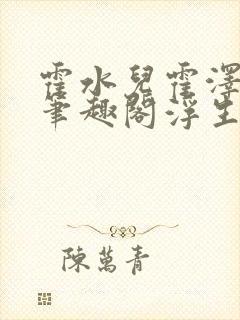 霍水兒霍澤
筆趣閣浮生
陳萬青